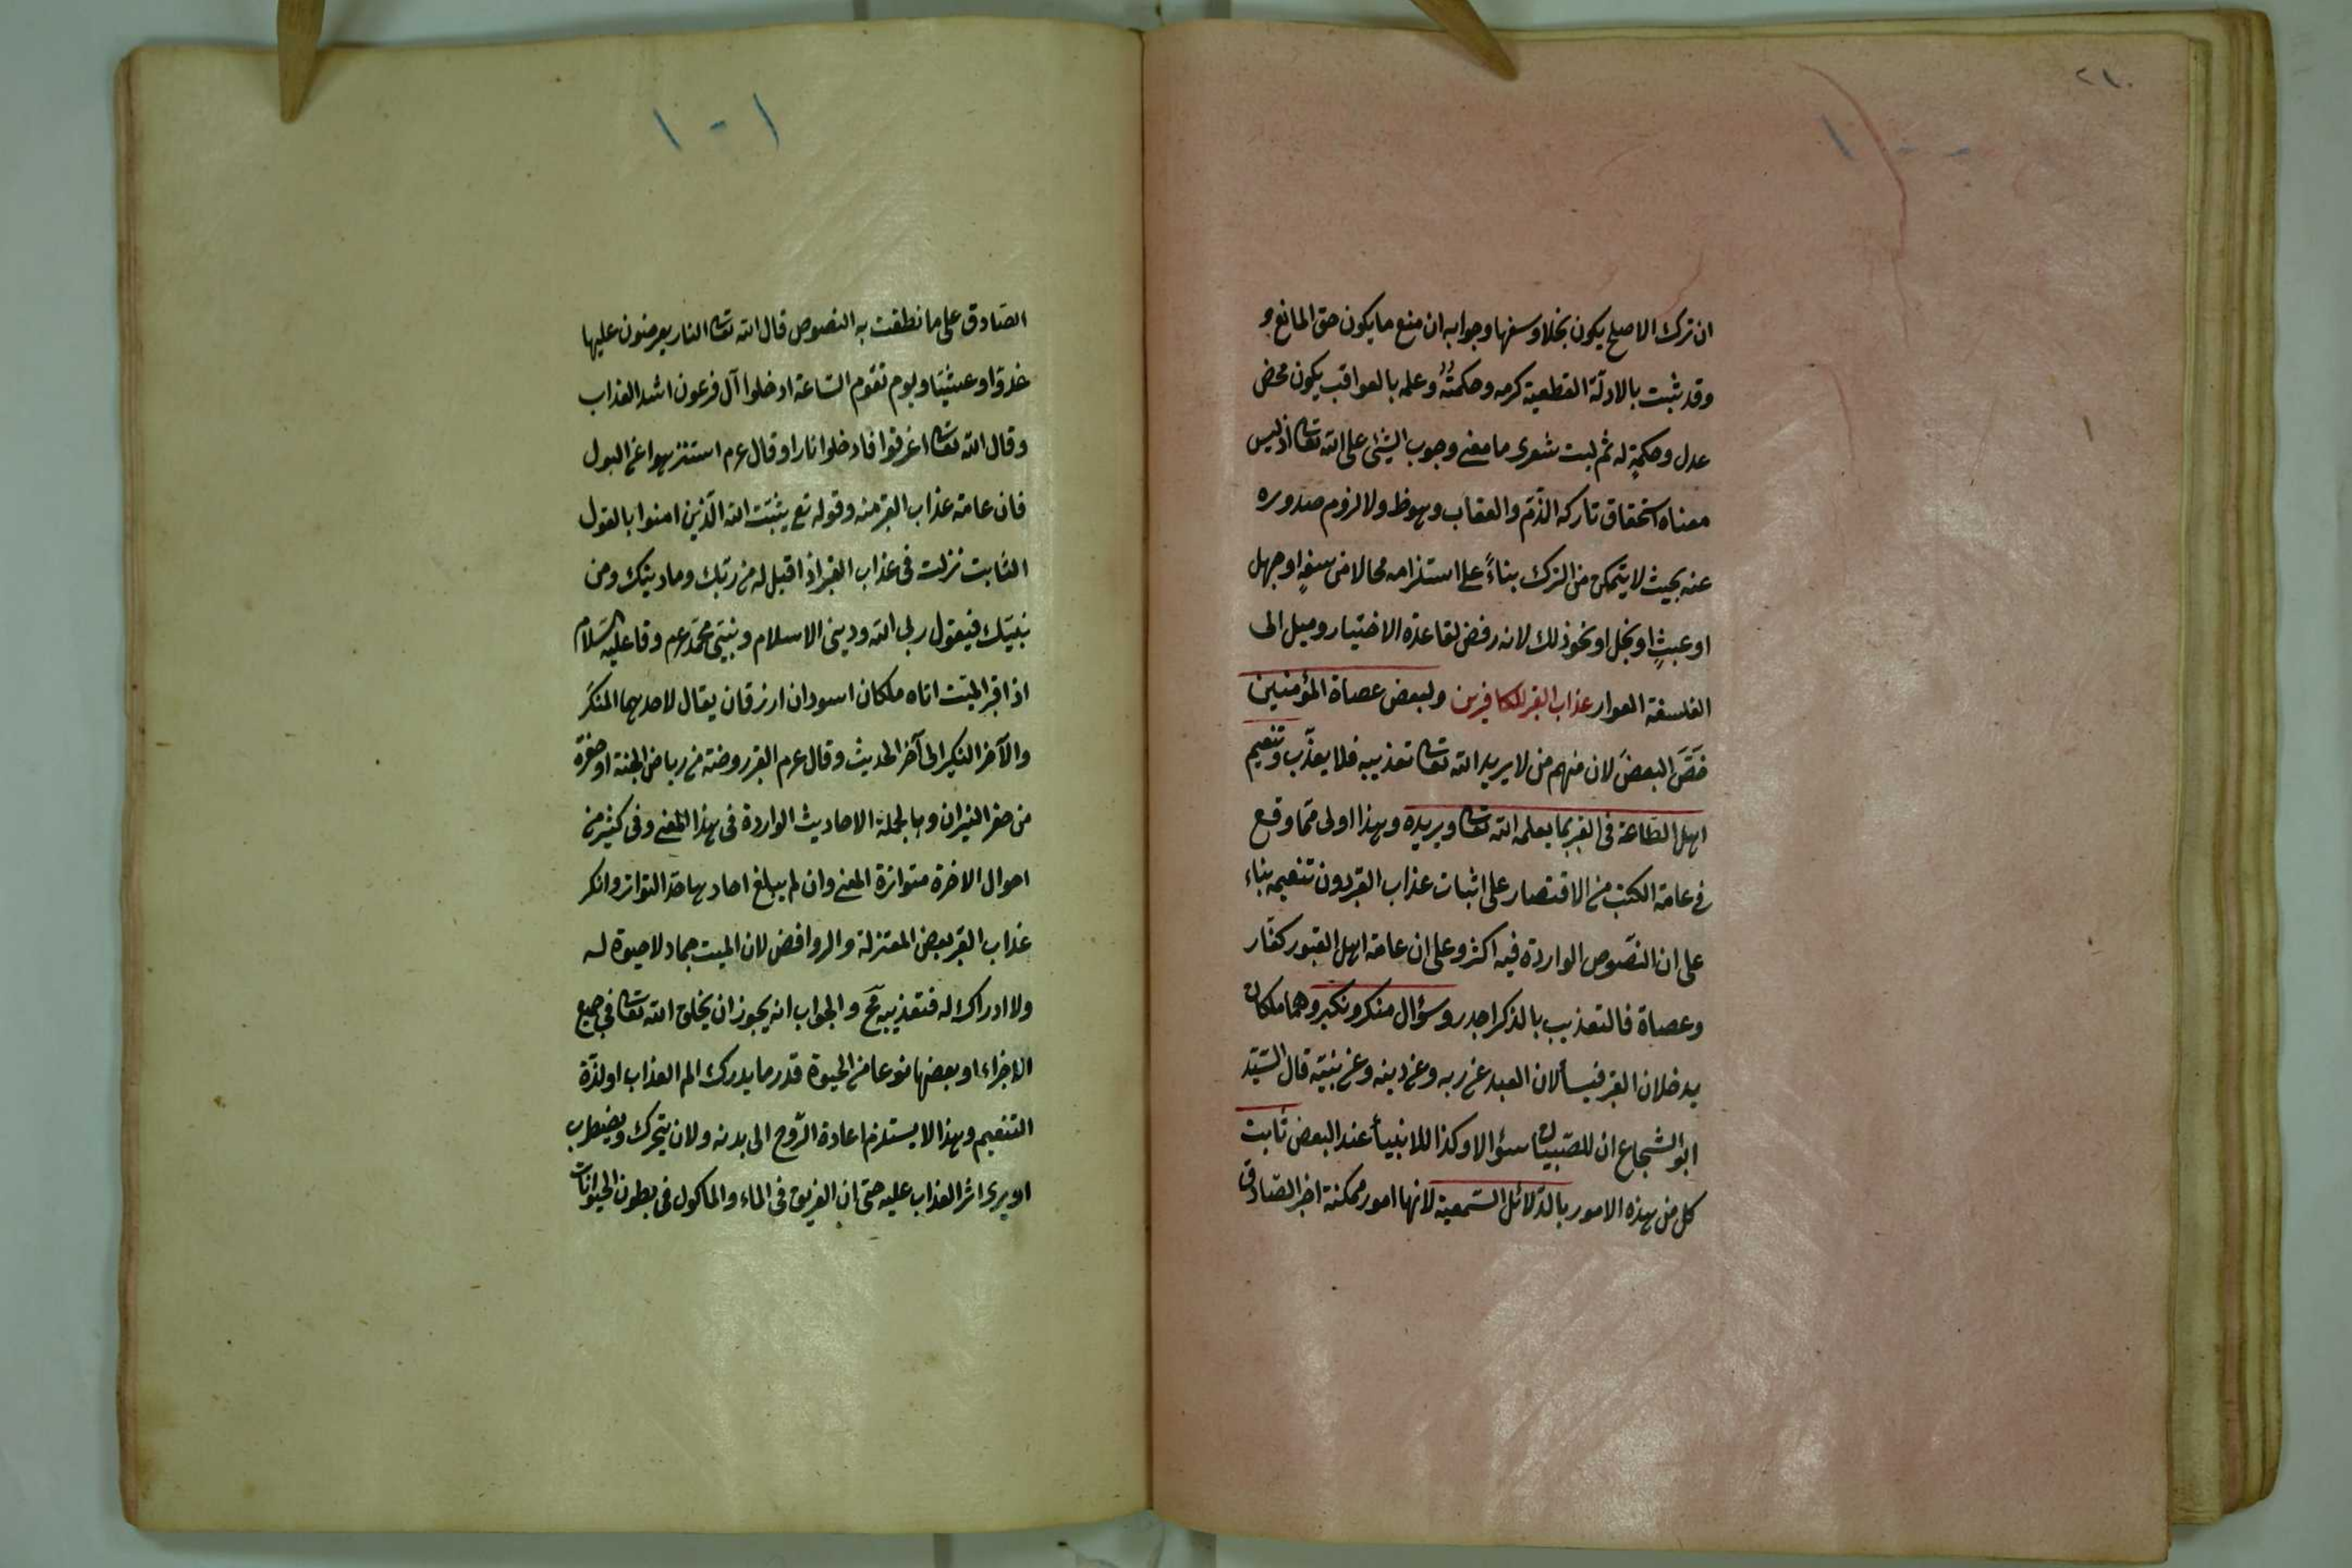 ٢١٠
ان ترك الاصلح يكون بخلا وسفها وجوابه ان منع ما يكون حق المانع و
وقد ثبت بالادلّة القطعية كرمه وحكمته وعلمه بالعواقب يكون محض
عدل وحكمة له ثم ليت شعرى ما معنى وجوب الشئ على الله تعالى اذ ليس
معناه استحقاق تاركه الذّم والعقاب وهو ظ ولا لزوم صدوره
عنه بحيث لا يتمكن من الترك بناءً على استلزامه محالا من سفهٍ او جهل
او عبثٍ او بخل او نحو ذلك لانه رفض لقاعدة الاختيار وميل الى
الفلسفة العوار عذاب القبر للكافرين ولبعض عصاة المؤمنين
خصّ البعضَ لان منهم من لا يريد الله تعالى تعذيبه فلا يعذّب وتنعيم
اهل الطّاعة فى القبر بما يعلمه الله تعالى ويريده وهذا اولى ممّا وقع
فى عامة الكتب من الاقتصار على اثبات عذاب القبر دون تنعيمه بناء
على ان النصوص الواردة فيه اكثر وعلى ان عامة اهل القبور كفّار
وعصاة فالتعذيب بالذكر اجدر وسؤال منكر ونكير وهما ملكان
يدخلان القبر فيسألان العبد عن ربه وعن دينه وعن نبيّه قال السّيّد
ابو الشجاع ان للصّبيان سؤالا وكذا للانبيأ عند البعض ثابت
كل من هذه الامور بالدّلائل السّمعية لانها امور ممكنة اخبر الصّادق
١-١
الصّادق على ما نطقت به النصوص قال الله تعالى النار يعرضون عليها
غدوّا وعشيّا ويوم تقوم السّاعة ادخلوا آل فرعون اشد العذاب
وقال الله تعالى اغرقوا فادخلوا نارا وقال عم استنزهوا عن البول
فان عامة عذاب القبر منه وقوله تع يثبّت الله الّذين امنوا بالقول
الثابت نزلت فى عذاب القبر اذا قيل له من ربّك وما دينك ومن
نبيّك فيقول ربى الله ودينى الاسلام ونبيّى محمّد عم وقا عليه السّلام
اذا قبر الميّت اتاه ملكان اسودان ازرقان يقال لاحدهما المنكَر
والآخر النكير الى آخر الحديث وقال عم القبر روضة من رياض الجنة او حفرة
من حفر النيران وبالجملة الاحاديث الواردة فى هذا المعنى وفى كثير من
احوال الاخرة متواترة المعنى وان لم يبلغ احادها حدّ التواتر وانكر
عذاب القبر بعض المعتزلة والروافض لان الميت جماد لا حيوة له
ولا ادراك له فتعذيبه مح والجواب انه يجوز ان يخلق الله تعالى فى جميع
الاجزاء او بعضها نوعا من الحيوة قدر ما يدرك الم العذاب او لذّة
التنعيم وهذا لا يستلزم اعادة الرّوح الى بدنه ولان يتحرك ويضطرب
او يرى اثر العذاب عليه حتى ان الغريق فى الماء والمأكول فى بطون الحيوانات